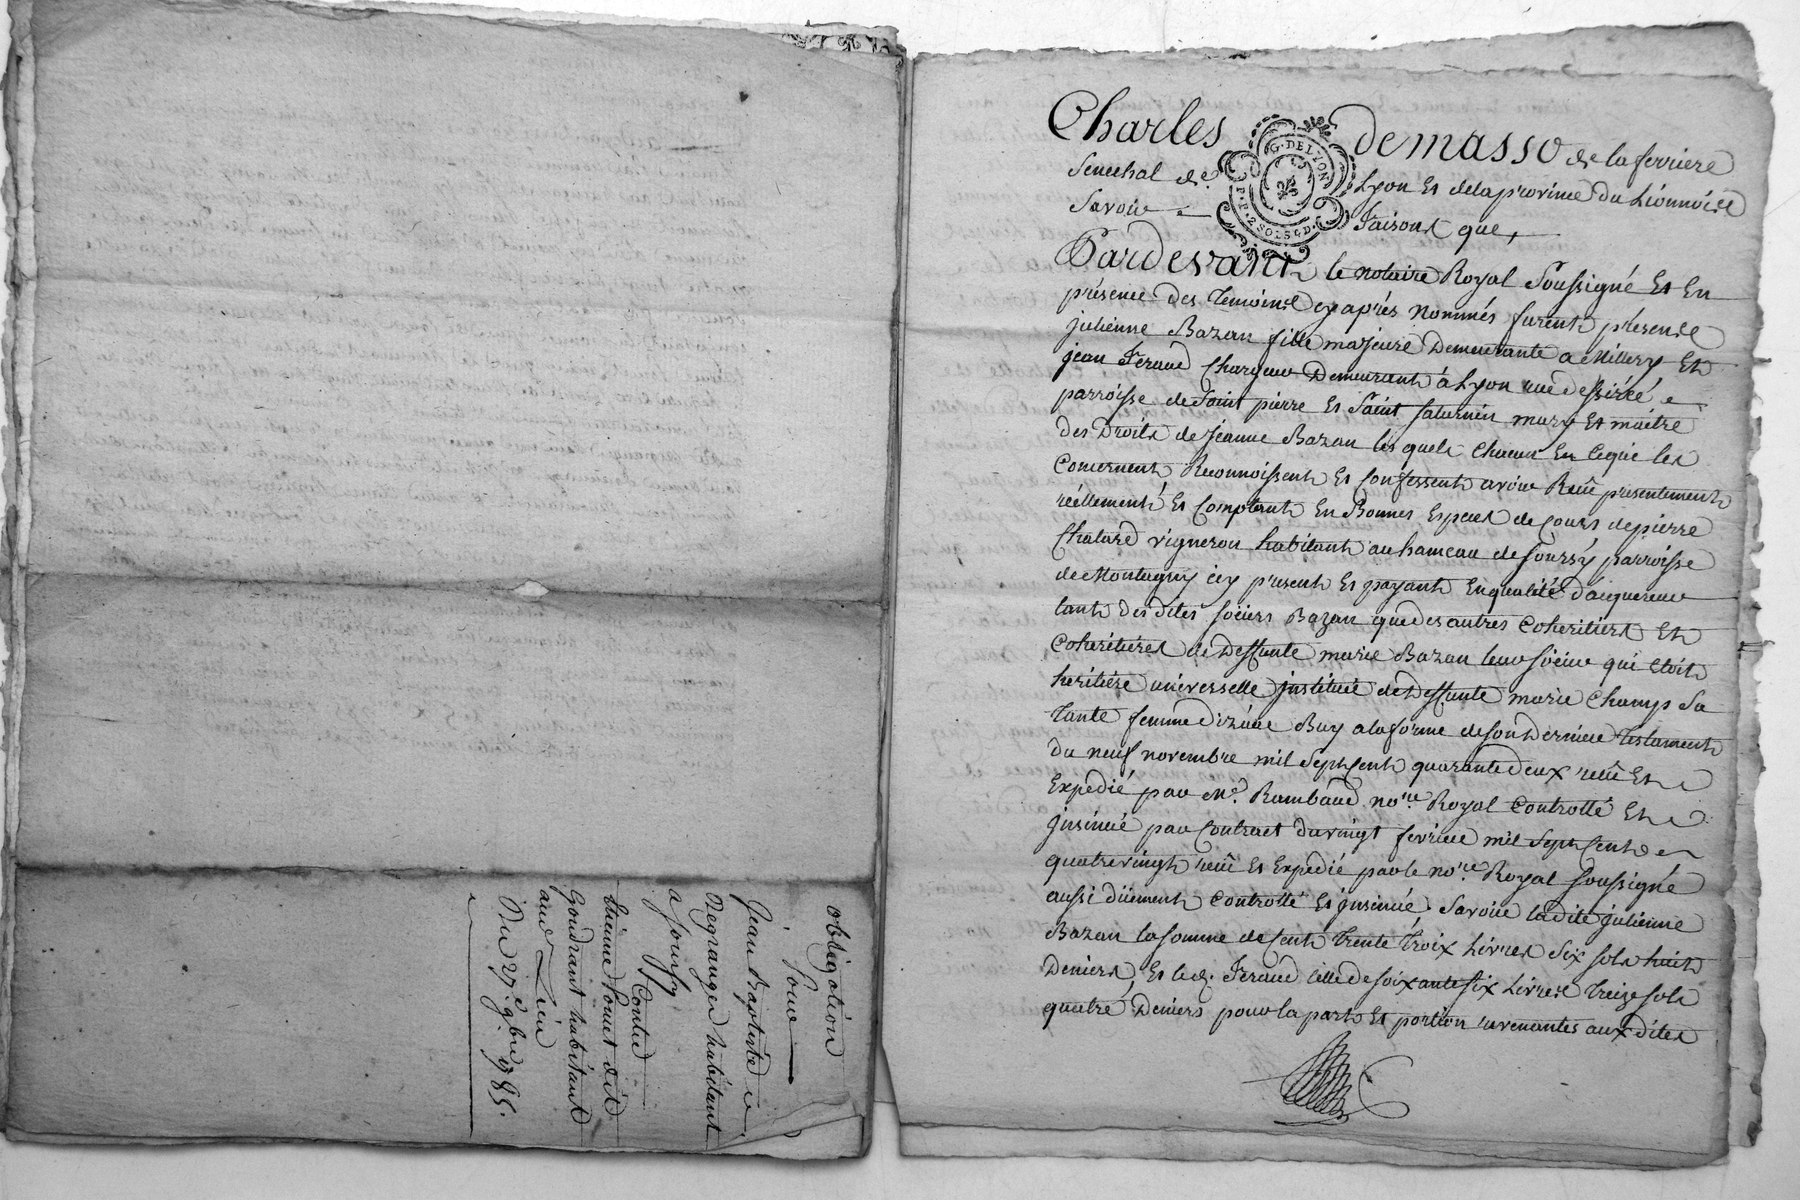 obligation
pour
jean Baptiste
Degranger habitant
a foursy
Contre
Etienne Poncet dit
Goudrant habitant
aud. Lieu
Du 27 7bre 1785.
Charles de masso de la ferriere
Senechal de Lyon Et de la province du Lionnois
Savoir faisons que,
G. DE LYON
P. P. 2 SOLS 4 D.
Pardevant le notaire Royal Soussigné Et En
présence des temoins cy après nommés furent présents
julienne Bazan fille majeure Demeurante a Millery Et
jean feraud Demeurant à Lyon rue
parroisse de Saint pierre Et Saint Saturnin mary Et maitre
des Droits de jeanne Bazan lesquels chacun En ce qui les
Concernent Reconnoissent Et Confessent avoir Reçû presentement
réellement Et Comptant En Bonnes Especes de Cours de pierre
Chalard vigneron habitant au hameau de foursy parroisse
de Montagny icy présent Et payant En qualité d'acquereur
tant des dites soeurs Bazan que des autres Coheritiers Et
Coheritieres de deffunte marie Bazan leur soeur qui Etoit
heritiére universelle instituée de deffunte marie Champ Sa
tante femme d'izaac Buy a la forme de son Dernier testament
du neuf novembre mil Sept Cent quarante deux reçû Et
Expedié par Me. Rambaud nore Royal Controllé Et
jnsinué par Contract du vingt fevrier mil Sept Cent
quatrevingt reçû Et Expedié par le nore Royal soussigné
aussi düement Controllé Et jnsinué. Savoir ladite julienne
Bazan la somme de Cent trente trois Livres Six sols huit
Deniers, Et led. feraud celle de soixante six Livres treize sols
quatre Deniers pour la part Et portion revenantes aux dites